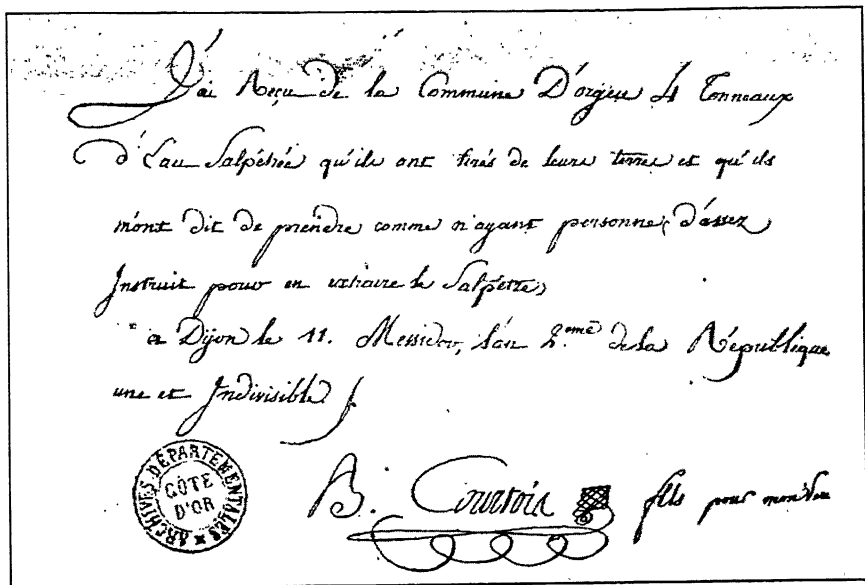 J'ai Reçu de la Commune D'orgeu 4 Tonneaux
d'Eau Salpêtrée qu'ils ont tirés de leurs terres et qu'ils
m'ont dit de prendre comme n'ayant personne d'assez
Instruit pour en extraire le Salpêtre,
a Dijon le 11. Messidor, l'an 2.eme de la République
une et Indivisible
B. Courtois fils pour mon
ARCHIVES DÉPARTEMENTALES
CÔTE
D'OR